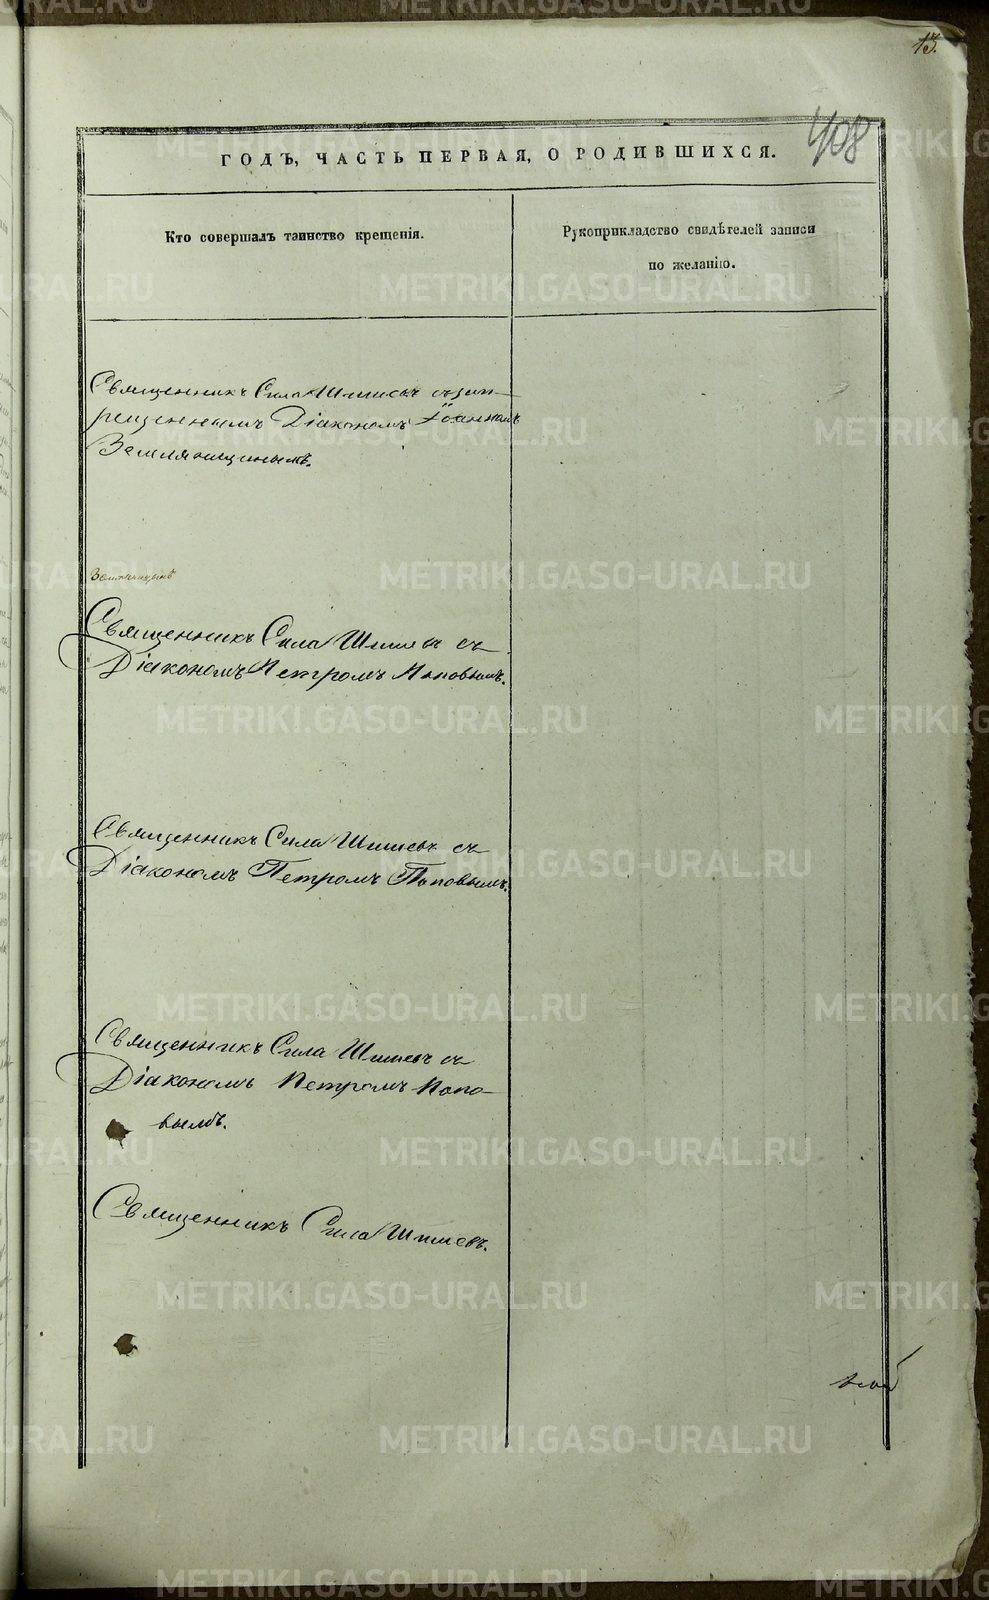 13.
408
ГОДЪ, ЧАСТЬ ПЕРВАЯ, О РОДИВШИХСЯ.
Кто совершалъ таинство крещенія.
Рукоприкладство свидѣтелей записи
по желанію.
Священникъ Сила Шишевъ съ зап-
рещеннымъ Діакономъ Іоанномъ
Земляницынымъ.
Священникъ Сила Шишевъ съ
Діакономъ Петромъ Поповымъ.
Священникъ Сила Шишевъ съ
Діакономъ Петромъ Поповымъ.
Священникъ Сила Шишевъ съ
Діакономъ Петромъ Попо-
вымъ.
Священникъ Сила Шишевъ.
METRIKI.GASO-URAL.RU